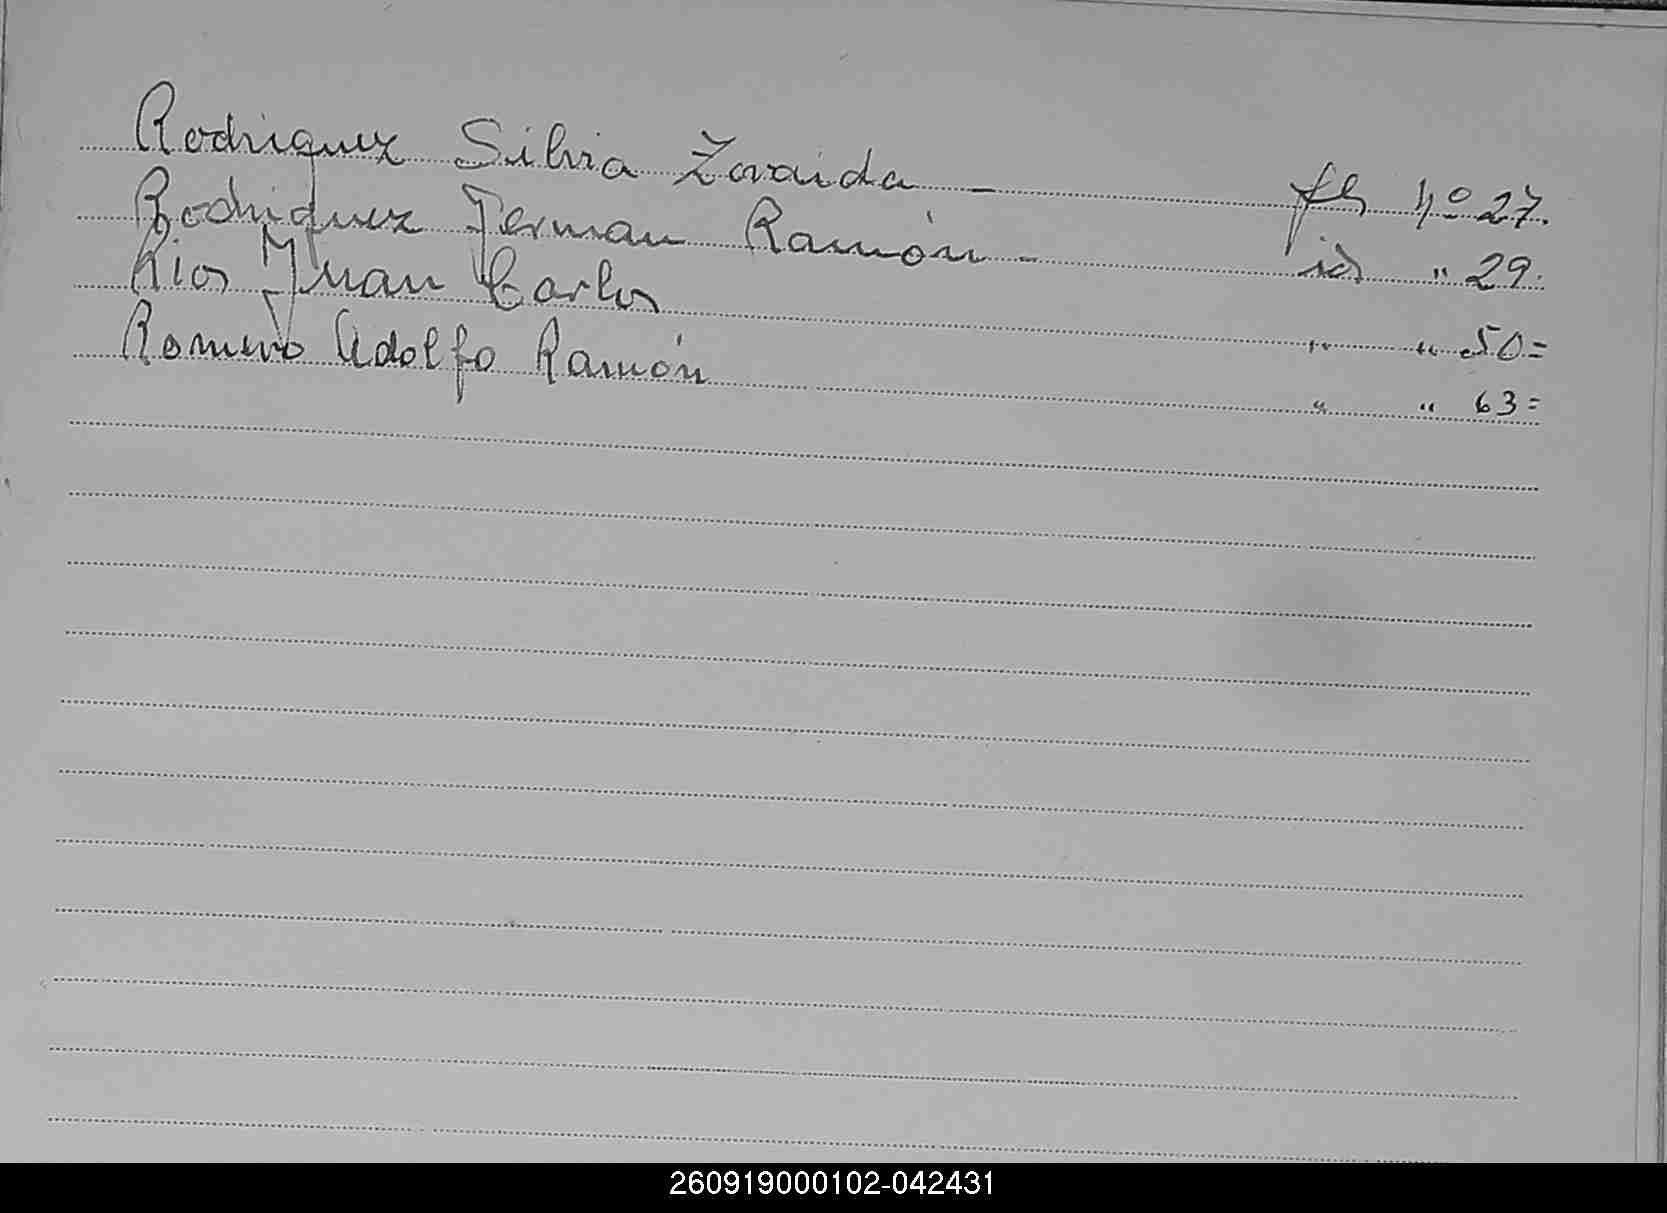 Rodriguez Silvia Zoraida - fls nº 27.
Rodriguez German Ramón - id " 29.
Rios Juan Carlos " " 50=
Romero Adolfo Ramón " " 63=
260919000102-042431